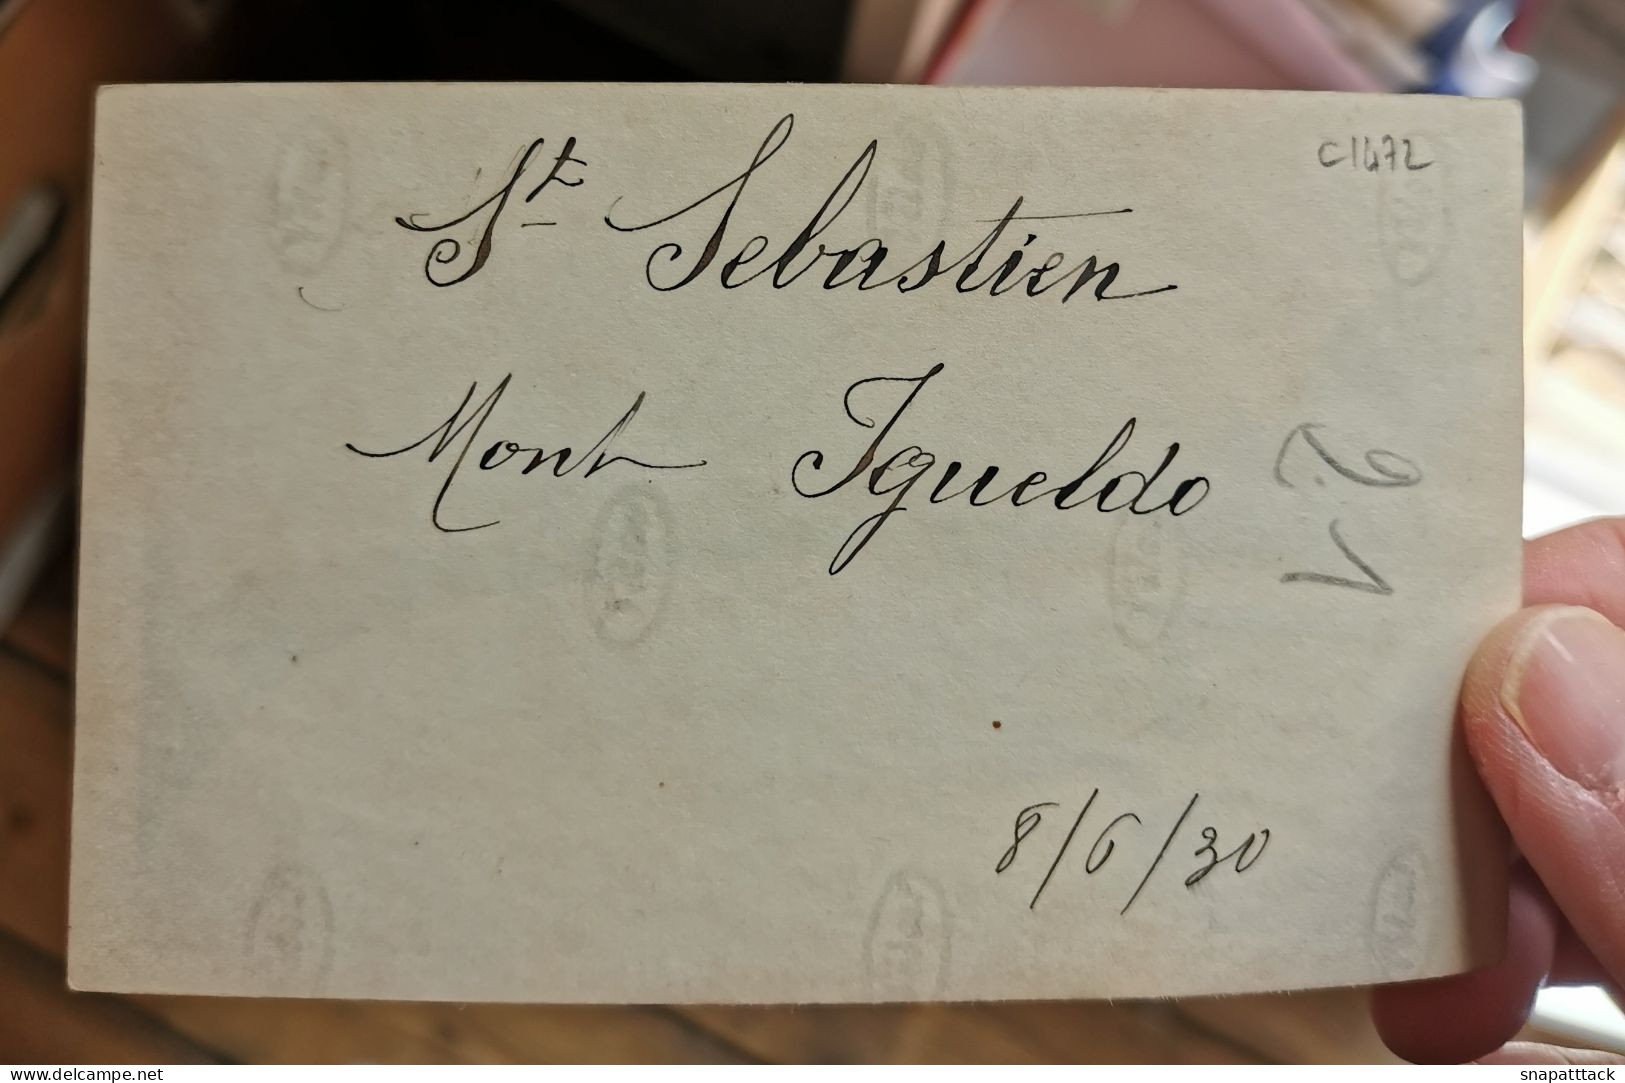 C1472
St Sebastien
Mont Igueldo
8/6/30
www.delcampe.net
snapatttack